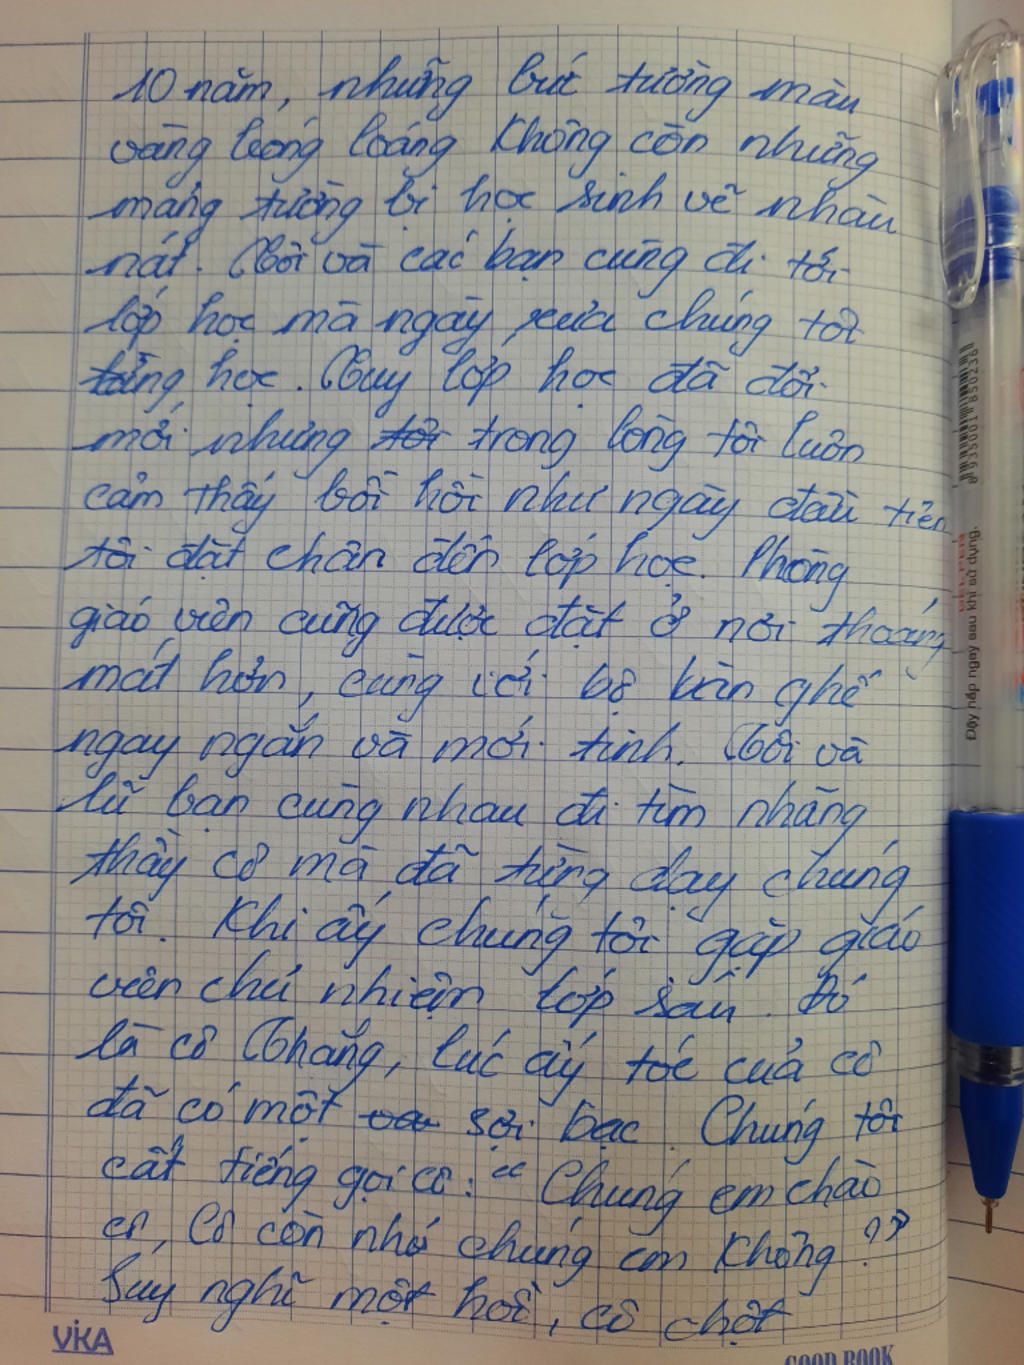 10 năm, những bức tường màu
vàng bóng loáng không còn những
mảng tường bị học sinh vẽ nhàu
nát. Tôi và các bạn cùng đi tới
lớp học mà ngày xưa chúng tôi
từng học. Tuy lớp học đã đổi
mới nhưng tôi trong lòng tôi luôn
cảm thấy bồi hồi như ngày đầu tiên
tôi đặt chân đến lớp học. Phòng
giáo viên cũng được đặt ở nơi thoáng
mát hơn, cùng với bộ bàn ghế
ngay ngắn và mới tinh. Tôi và
lũ bạn cùng nhau đi tìm những
thầy cô mà đã từng dạy chúng
tôi. Khi ấy chúng tôi gặp giáo
viên chủ nhiệm lớp sáu. Đó
là cô Thắng, lúc ấy tóc của cô
đã có một sợi bạc. Chúng tôi
cất tiếng gọi cô: "Chúng em chào
cô, Cô còn nhớ chúng em không?"
Suy nghĩ một hồi, cô chợt
VIKA
GOOD BOOK
8 935001 850236
Đậy nắp ngay sau khi sử dụng.